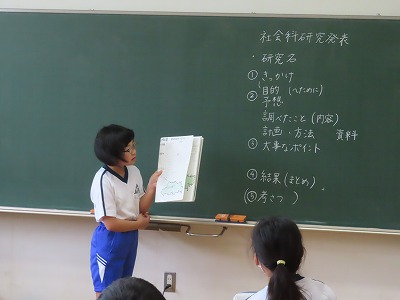 社会科研究発表
・研究名
① きっかけ
② 目的 (〜ために)
予想
調べたこと (内容)
計画・方法 資料
③ 大事なポイント
④ 結果 (まとめ)
(⑤ 考さつ )